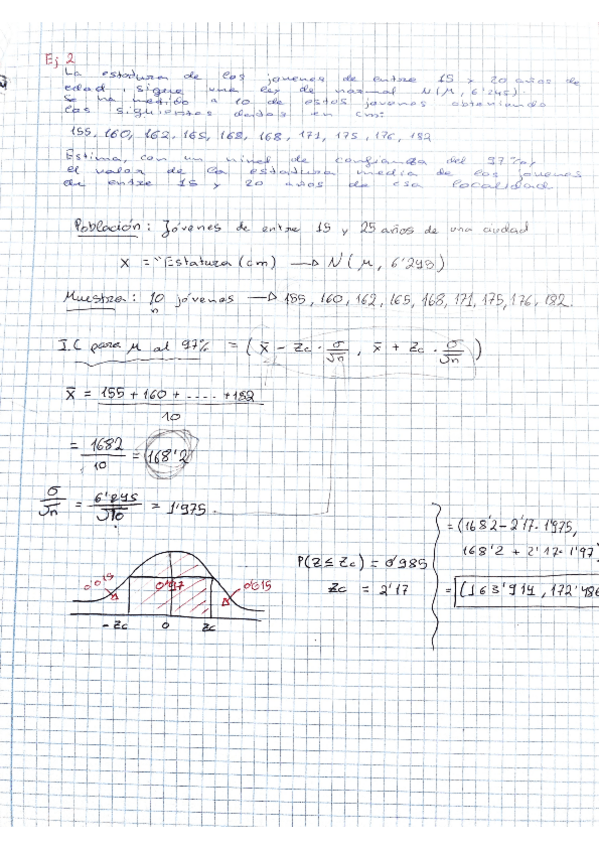 Ej 2
La estatura de los jovenes de entre 15 y 20 años de
edad, sigue una ley de normal N(μ, 6'245).
Se ha medido a 10 de estos jovenes obteniendo
los siguientes datos en cm:
155, 160, 162, 165, 168, 168, 171, 175, 176, 182
Estima, con un nivel de confianza del 97%,
el valor de la estatura media de los jovenes
de entre 15 y 20 años de esa localidad
Población: Jóvenes de entre 15 y 25 años de una ciudad
X = "Estatura (cm) → N(μ, 6'245)
Muestra: 10 jóvenes → 155, 160, 162, 165, 168, 171, 175, 176, 182.
n
I.C para μ al 97% = (x̄ - Zc · σ/√n , x̄ + Zc · σ/√n)
x̄ = 155 + 160 + ..... + 182
10
= 1682/10 = 168'2
σ/√n = 6'245/√10 = 1'975.
P(Z ≤ Zc) = 0'985
Zc = 2'17
= (168'2 - 2'17 · 1'975,
168'2 + 2'17 · 1'97
= (163'914, 172'486
0'015 0'97 0'015
-Zc 0 Zc